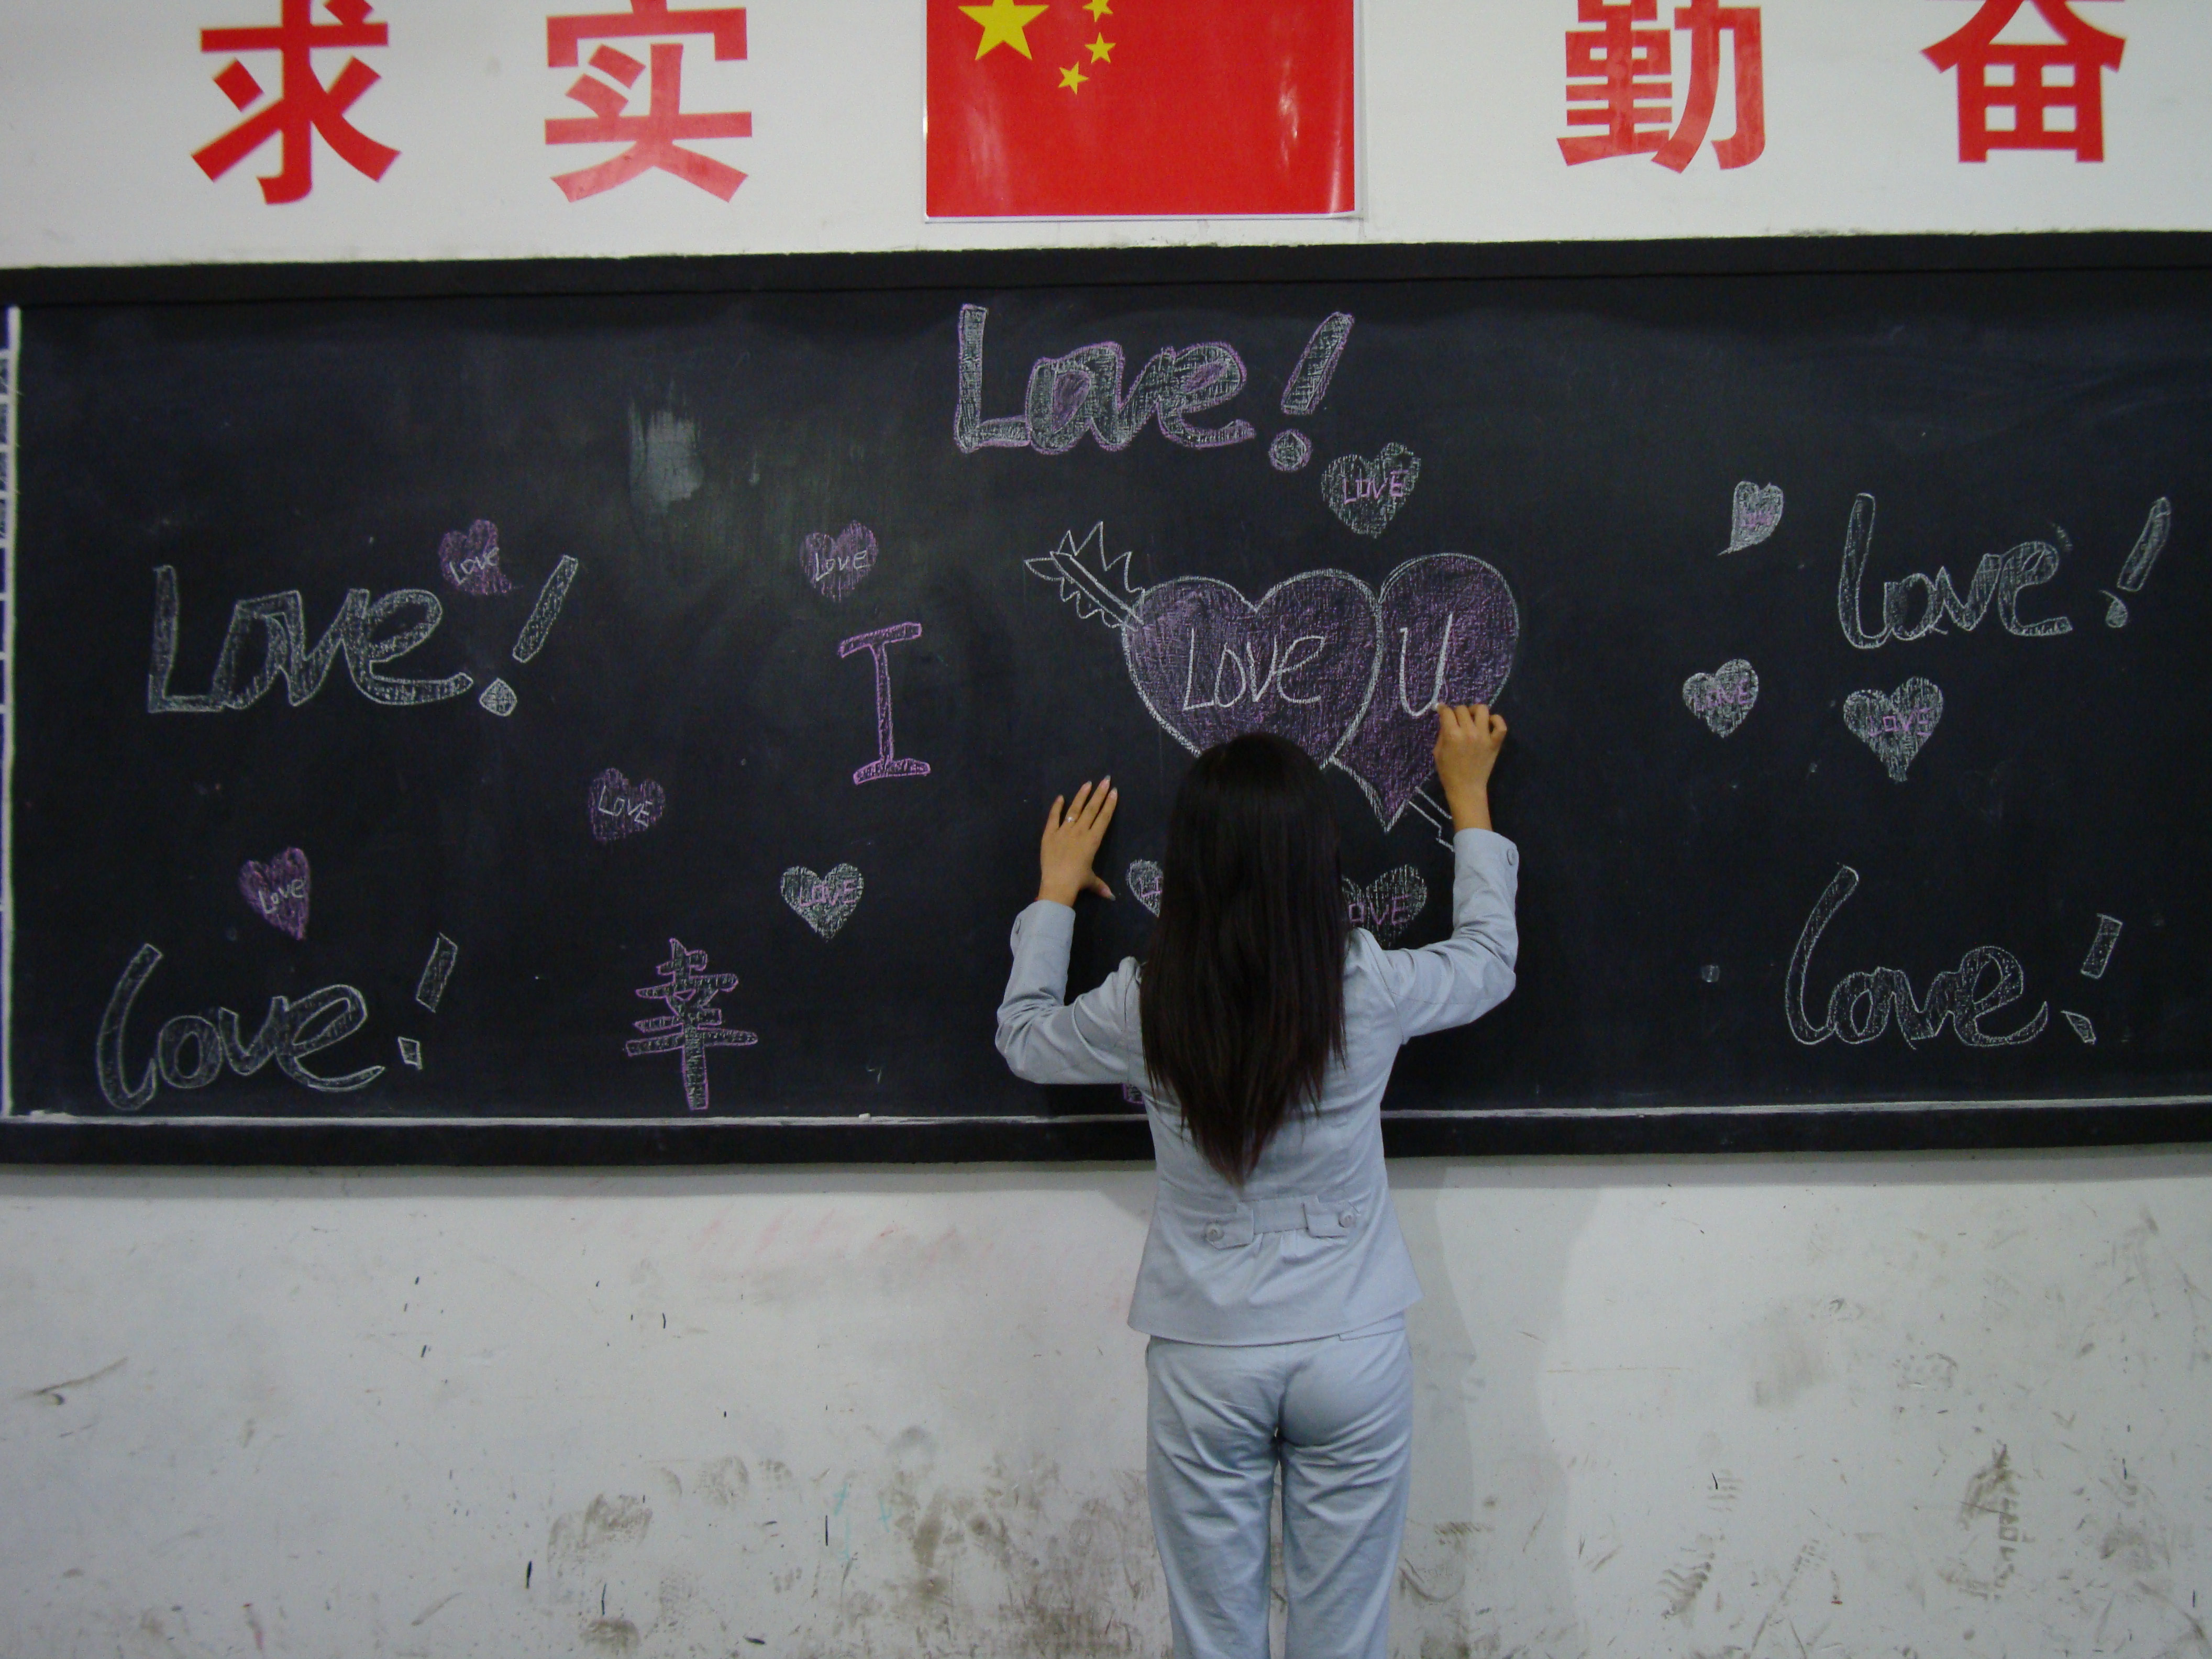 求 实 勤 奋
Love!
LOVE
Love! LOVE LOVE Love!
I Love U
LOVE LOVE
LOVE
Love LOVE LOVE
Love! 幸 Love!